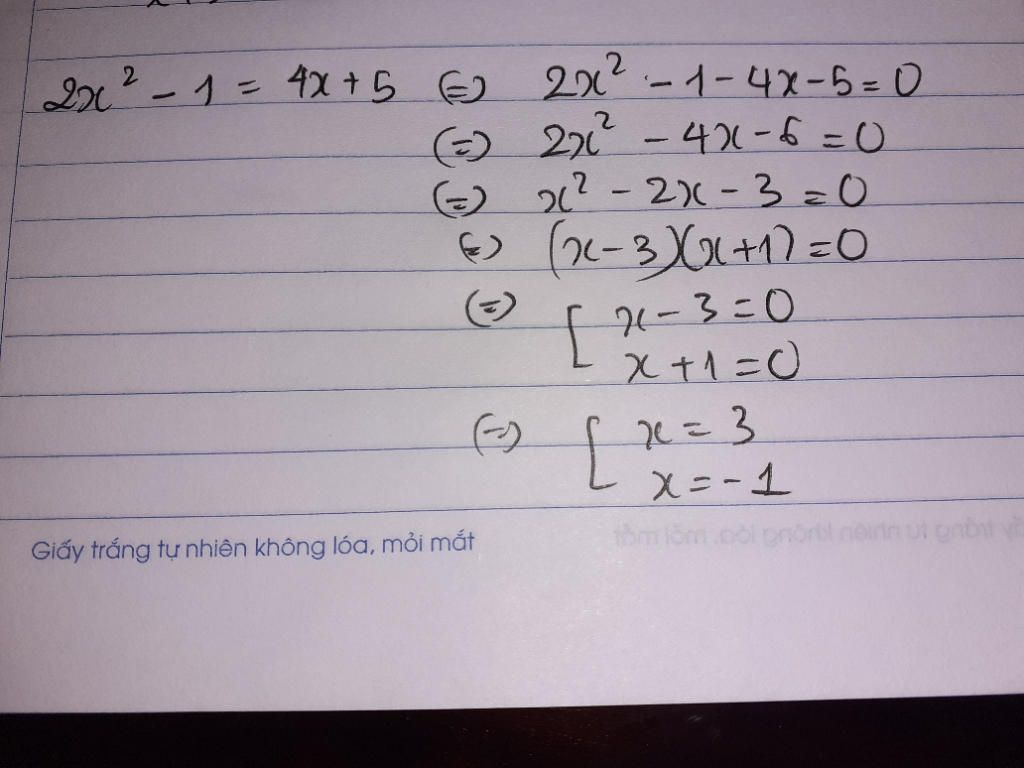 2x² - 1 = 4x + 5 (=) 2x² - 1 - 4x - 5 = 0
(=) 2x² - 4x - 6 = 0
(=) x² - 2x - 3 = 0
(=) (x - 3)(x + 1) = 0
(=) [ x - 3 = 0
x + 1 = 0
(=) [ x = 3
x = -1
Giấy trắng tự nhiên không lóa, mỏi mắt